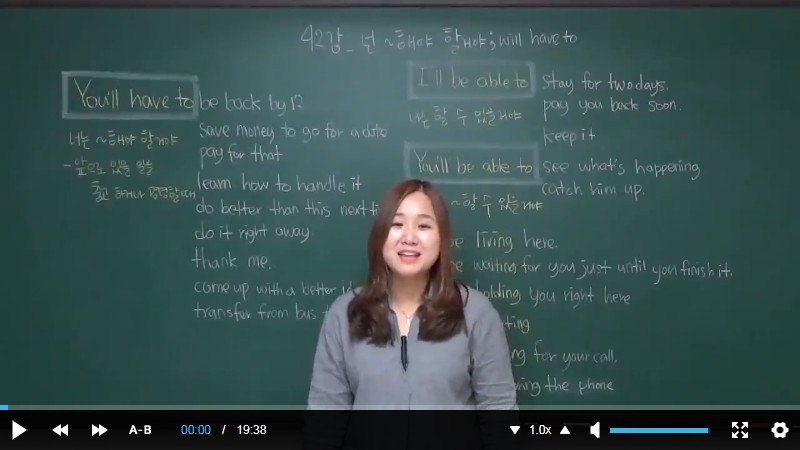 42강_넌 ~해야 할거야; will have to
You'll have to be back by 12
너는 ~해야 할거야
save money to go for a date
pay for that
- 앞으로 있을 일을
learn how to handle it
do better than this next
do it right away.
thank me.
come up with a better
transfer from bus
I'll be able to stay for two days.
난 할 수 있을거야
pay you back soon.
keep it
You'll be able to see what's happening
~할 수 있을거야
catch him up.
living here.
waiting for you just until you finish it.
holding you right here
for your call.
the phone
A-B 00:00 / 19:38 1.0x